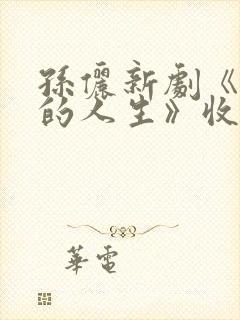 孫儷新劇《
的人生》收
華電